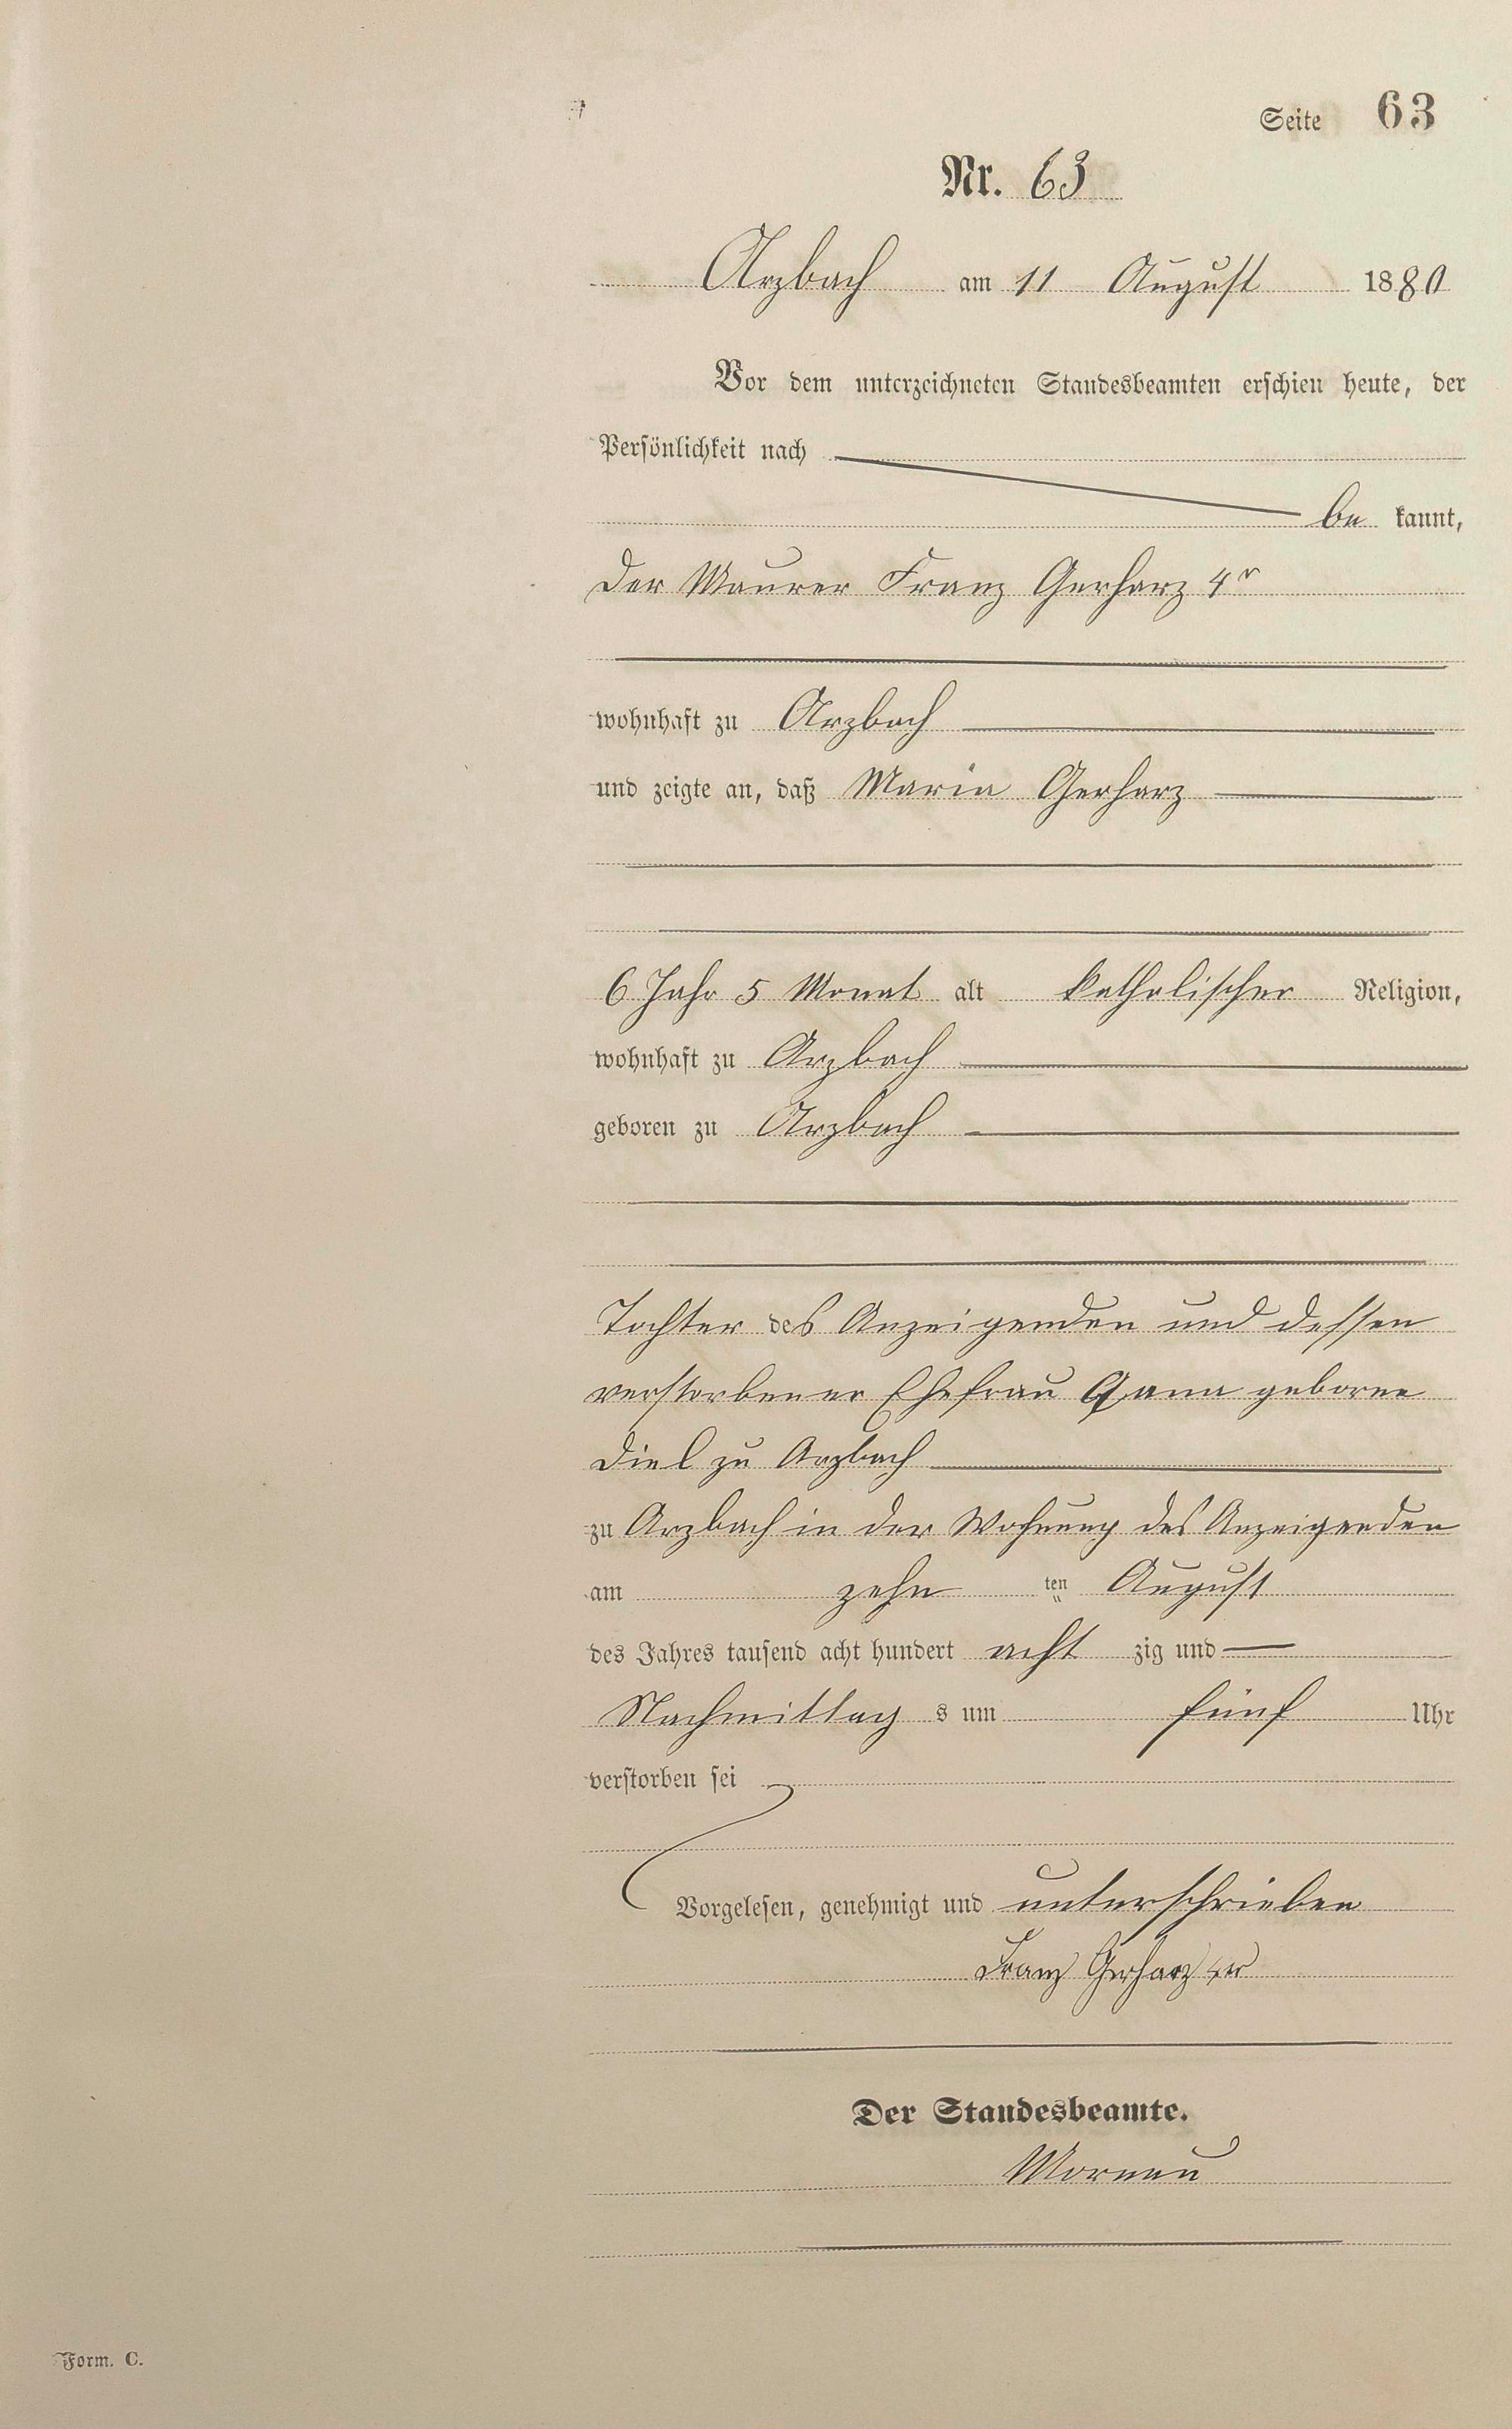 Seite 63
Nr. 63
Arzbach am 11 August 1880
Vor dem unterzeichneten Standesbeamten erschien heute, der
Persönlichkeit nach
be kannt,
der Maurer Franz Gerharz 4r
wohnhaft zu Arzbach
und zeigte an, daß Maria Gerharz
6 Jahr 5 Monat alt katholischer Religion,
wohnhaft zu Arzbach
geboren zu Arzbach
Tochter des Anzeigenden und dessen
verstorbener Ehefrau geborne
Diel zu Arzbach
zu Arzbach in der Wohnung des Anzeigenden
am zehn ten August
des Jahres tausend acht hundert acht zig und
Nachmittag s um fünf Uhr
verstorben sei
Vorgelesen, genehmigt und unterschrieben
Franz Gerharz 4er
Der Standesbeamte.
Form. C.